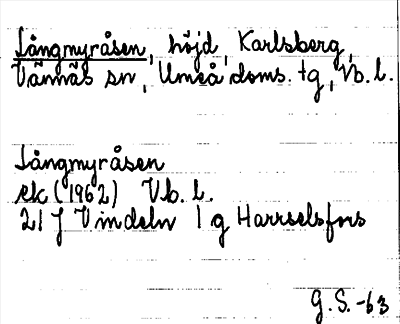 Långmyråsen, höjd, Karlsberg,
Vännäs sn, Umeå doms. tg, Vb. l.
Långmyråsen
ek (1962) Vb. l.
21 J Vindeln 1 g Harrselsfors
G. S. -63